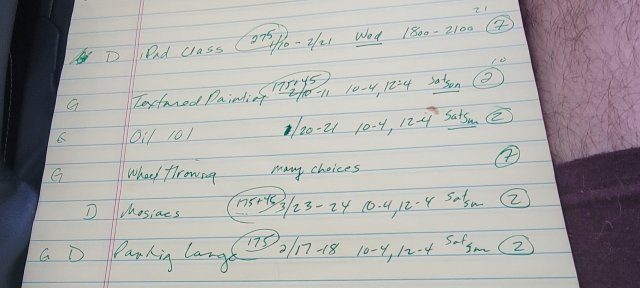 D iPad class 275 1/10 - 2/21 Wed 1800 - 2100 21 7
G Textured Painting 175+45 2/10-11 10-4, 12-4 Sat Sun 10 2
G Oil 101 1/20-21 10-4, 12-4 Sat Sun 2
G Wheel Throwing many choices 7
D Mosiacs 175+45 3/23-24 10-4, 12-4 Sat Sun 2
G D Painting Large 175 2/17-18 10-4, 12-4 Sat Sun 2